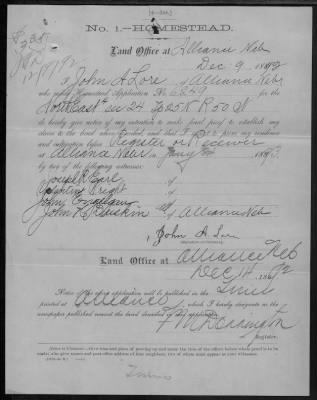 [4-348.]
No. 1.—HOMESTEAD.
Land Office at Alliance Neb
Dec 9, 1892
I, John A. Lore, of Alliance Nebr
who made Homestead Application No. 6249 for the
South East 4 Sec 24 T 25 N R 50 W
do hereby give notice of my intention to make final proof to establish my
claim to the land above described, and that I expect to prove my residence
and cultivation before Register or Receiver
at Alliance Nebr on Jany, 1893,
by two of the following witnesses:
Joseph Earl, of
Valentine Bright, of
John, of
John, all of Alliance Neb
John A. Lore
(Signature of claimant.)
Land Office at Alliance Neb
Dec 14, 1892
Notice of the above application will be published in the Times
printed at Alliance, which I hereby designate as the
newspaper published nearest the land described in said application.
Register.
Notice to Claimant.—Give time and place of proving up and name and title of the officer before whom proof is to be
made; also give names and post office address of four neighbors, two of whom must appear as your witnesses.
Times